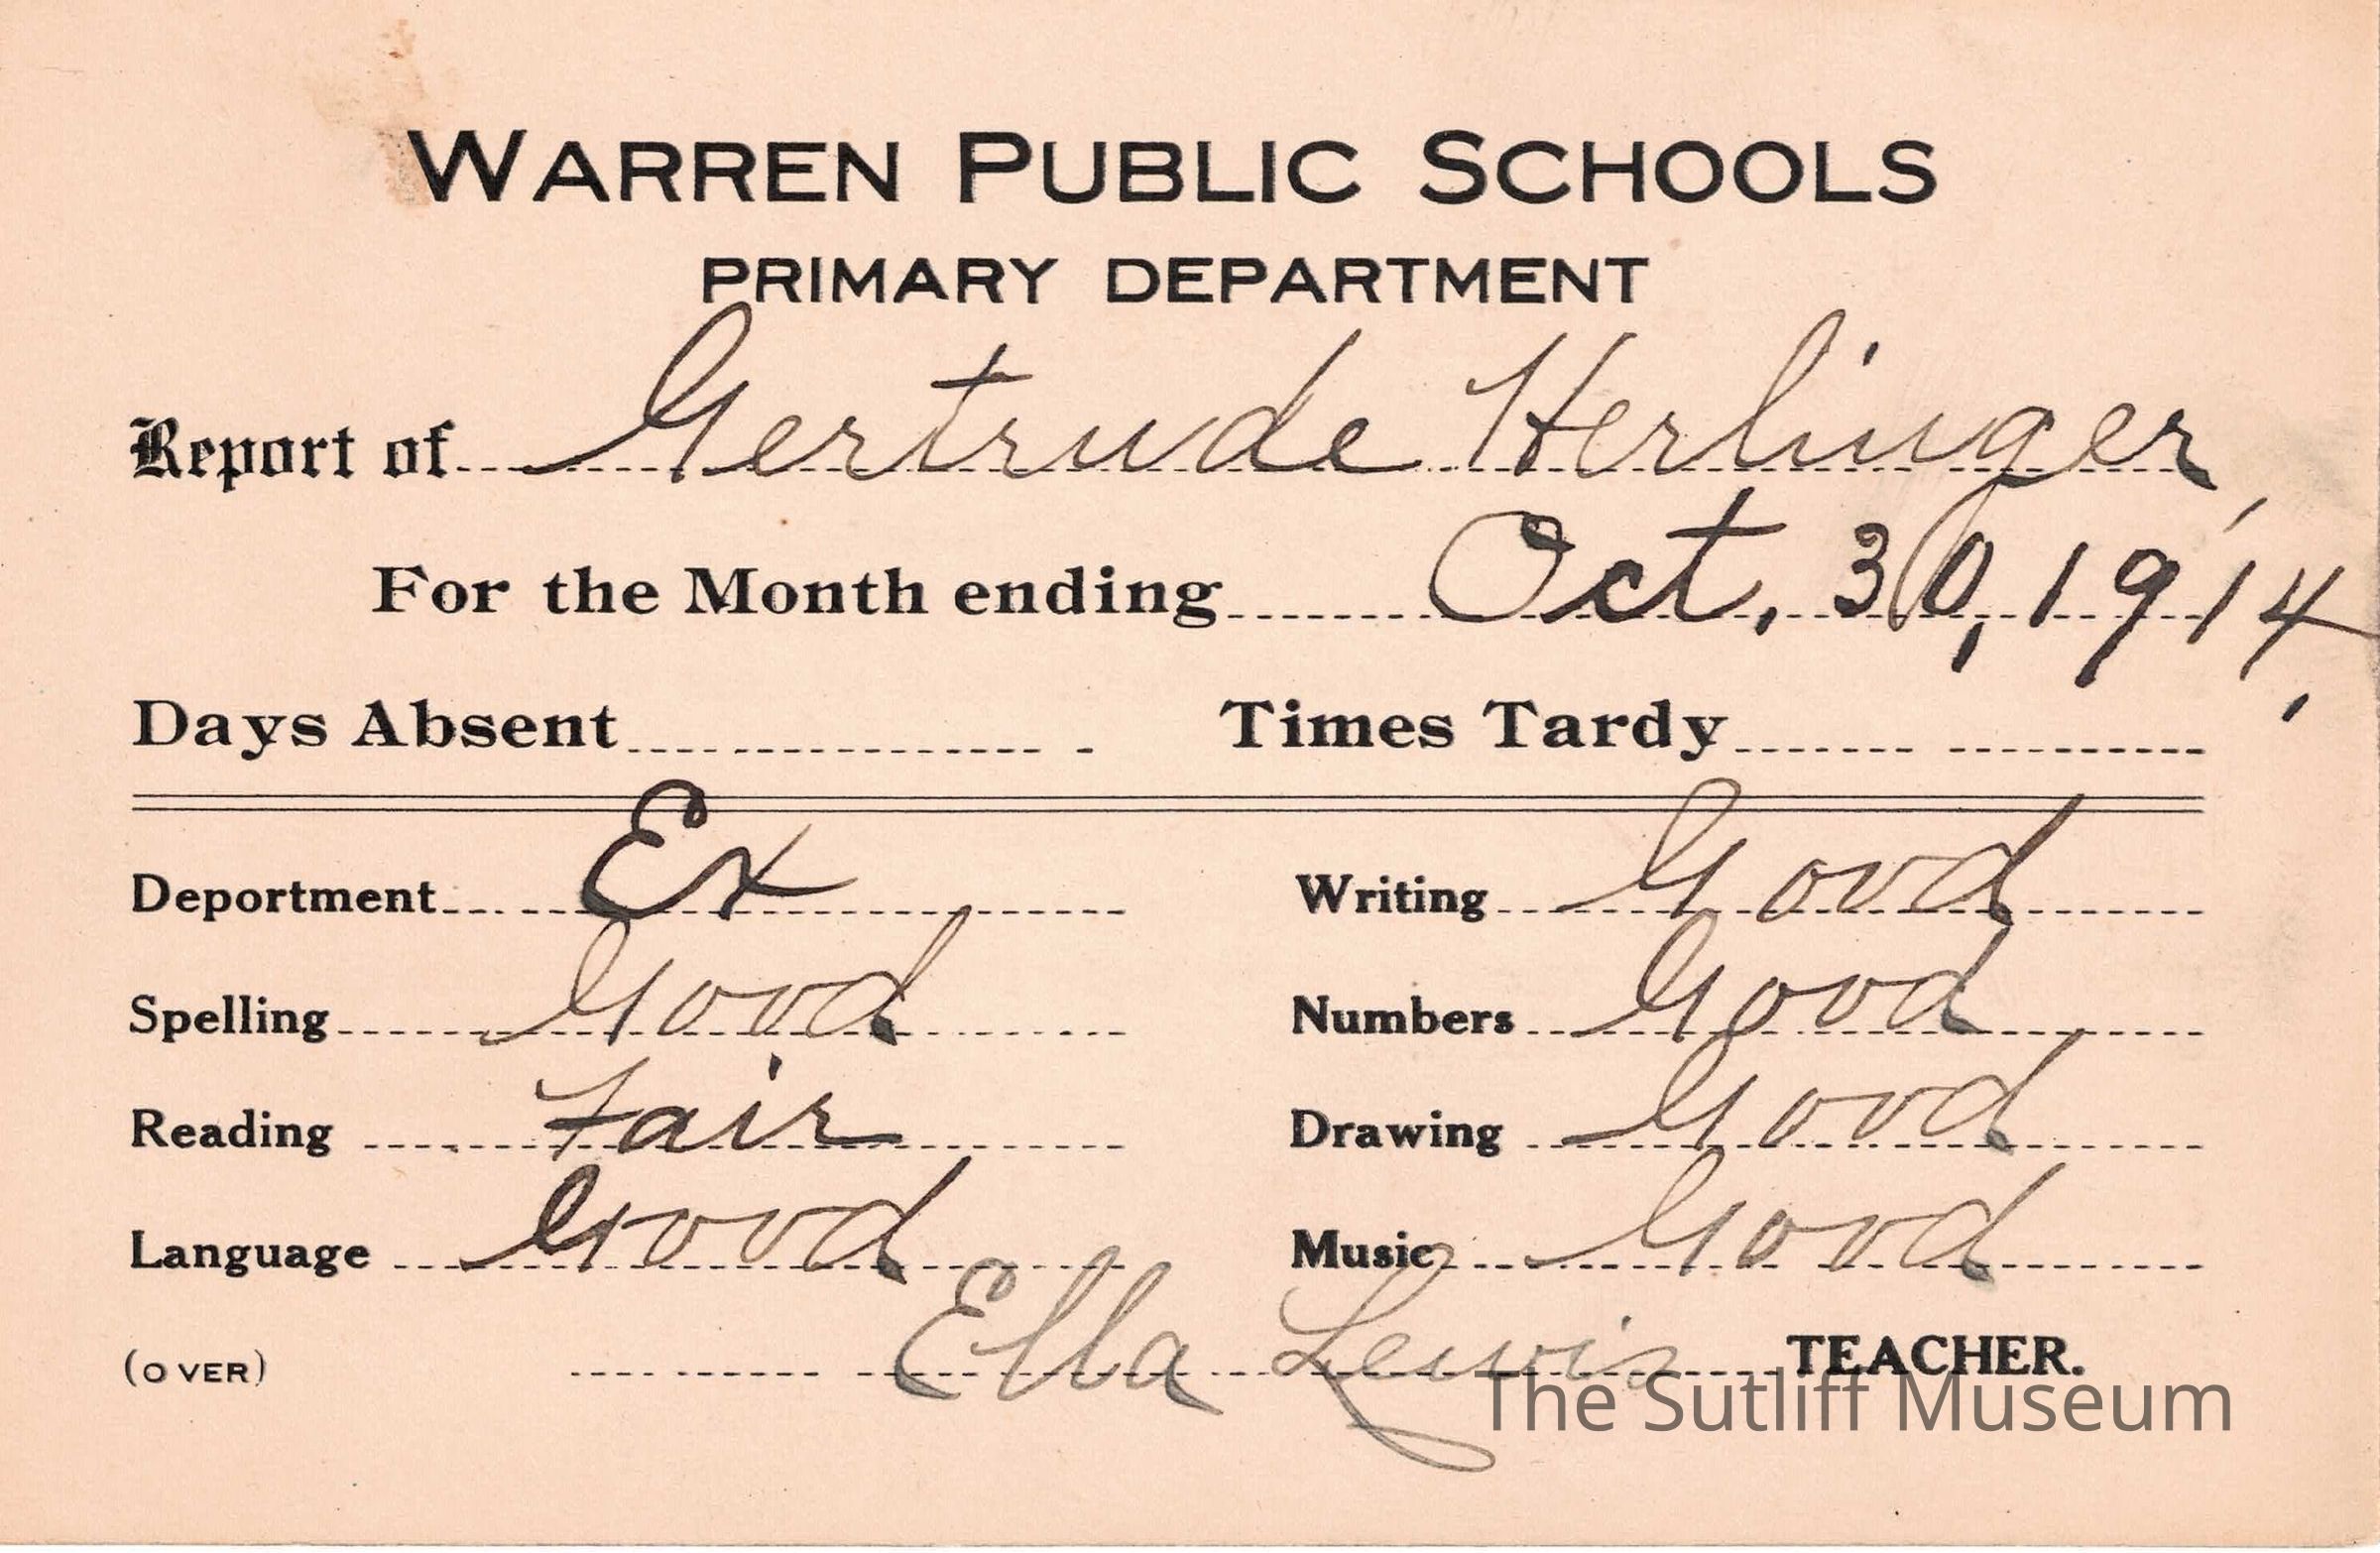 WARREN PUBLIC SCHOOLS
PRIMARY DEPARTMENT
Report of Gertrude Herlinger,
For the Month ending Oct. 30, 1914.
Days Absent Times Tardy
Deportment Ex Writing Good
Spelling Good Numbers Good
Reading Fair Drawing Good
Language Good Music Good
(OVER) Ella Lewis TEACHER.
The Sutliff Museum